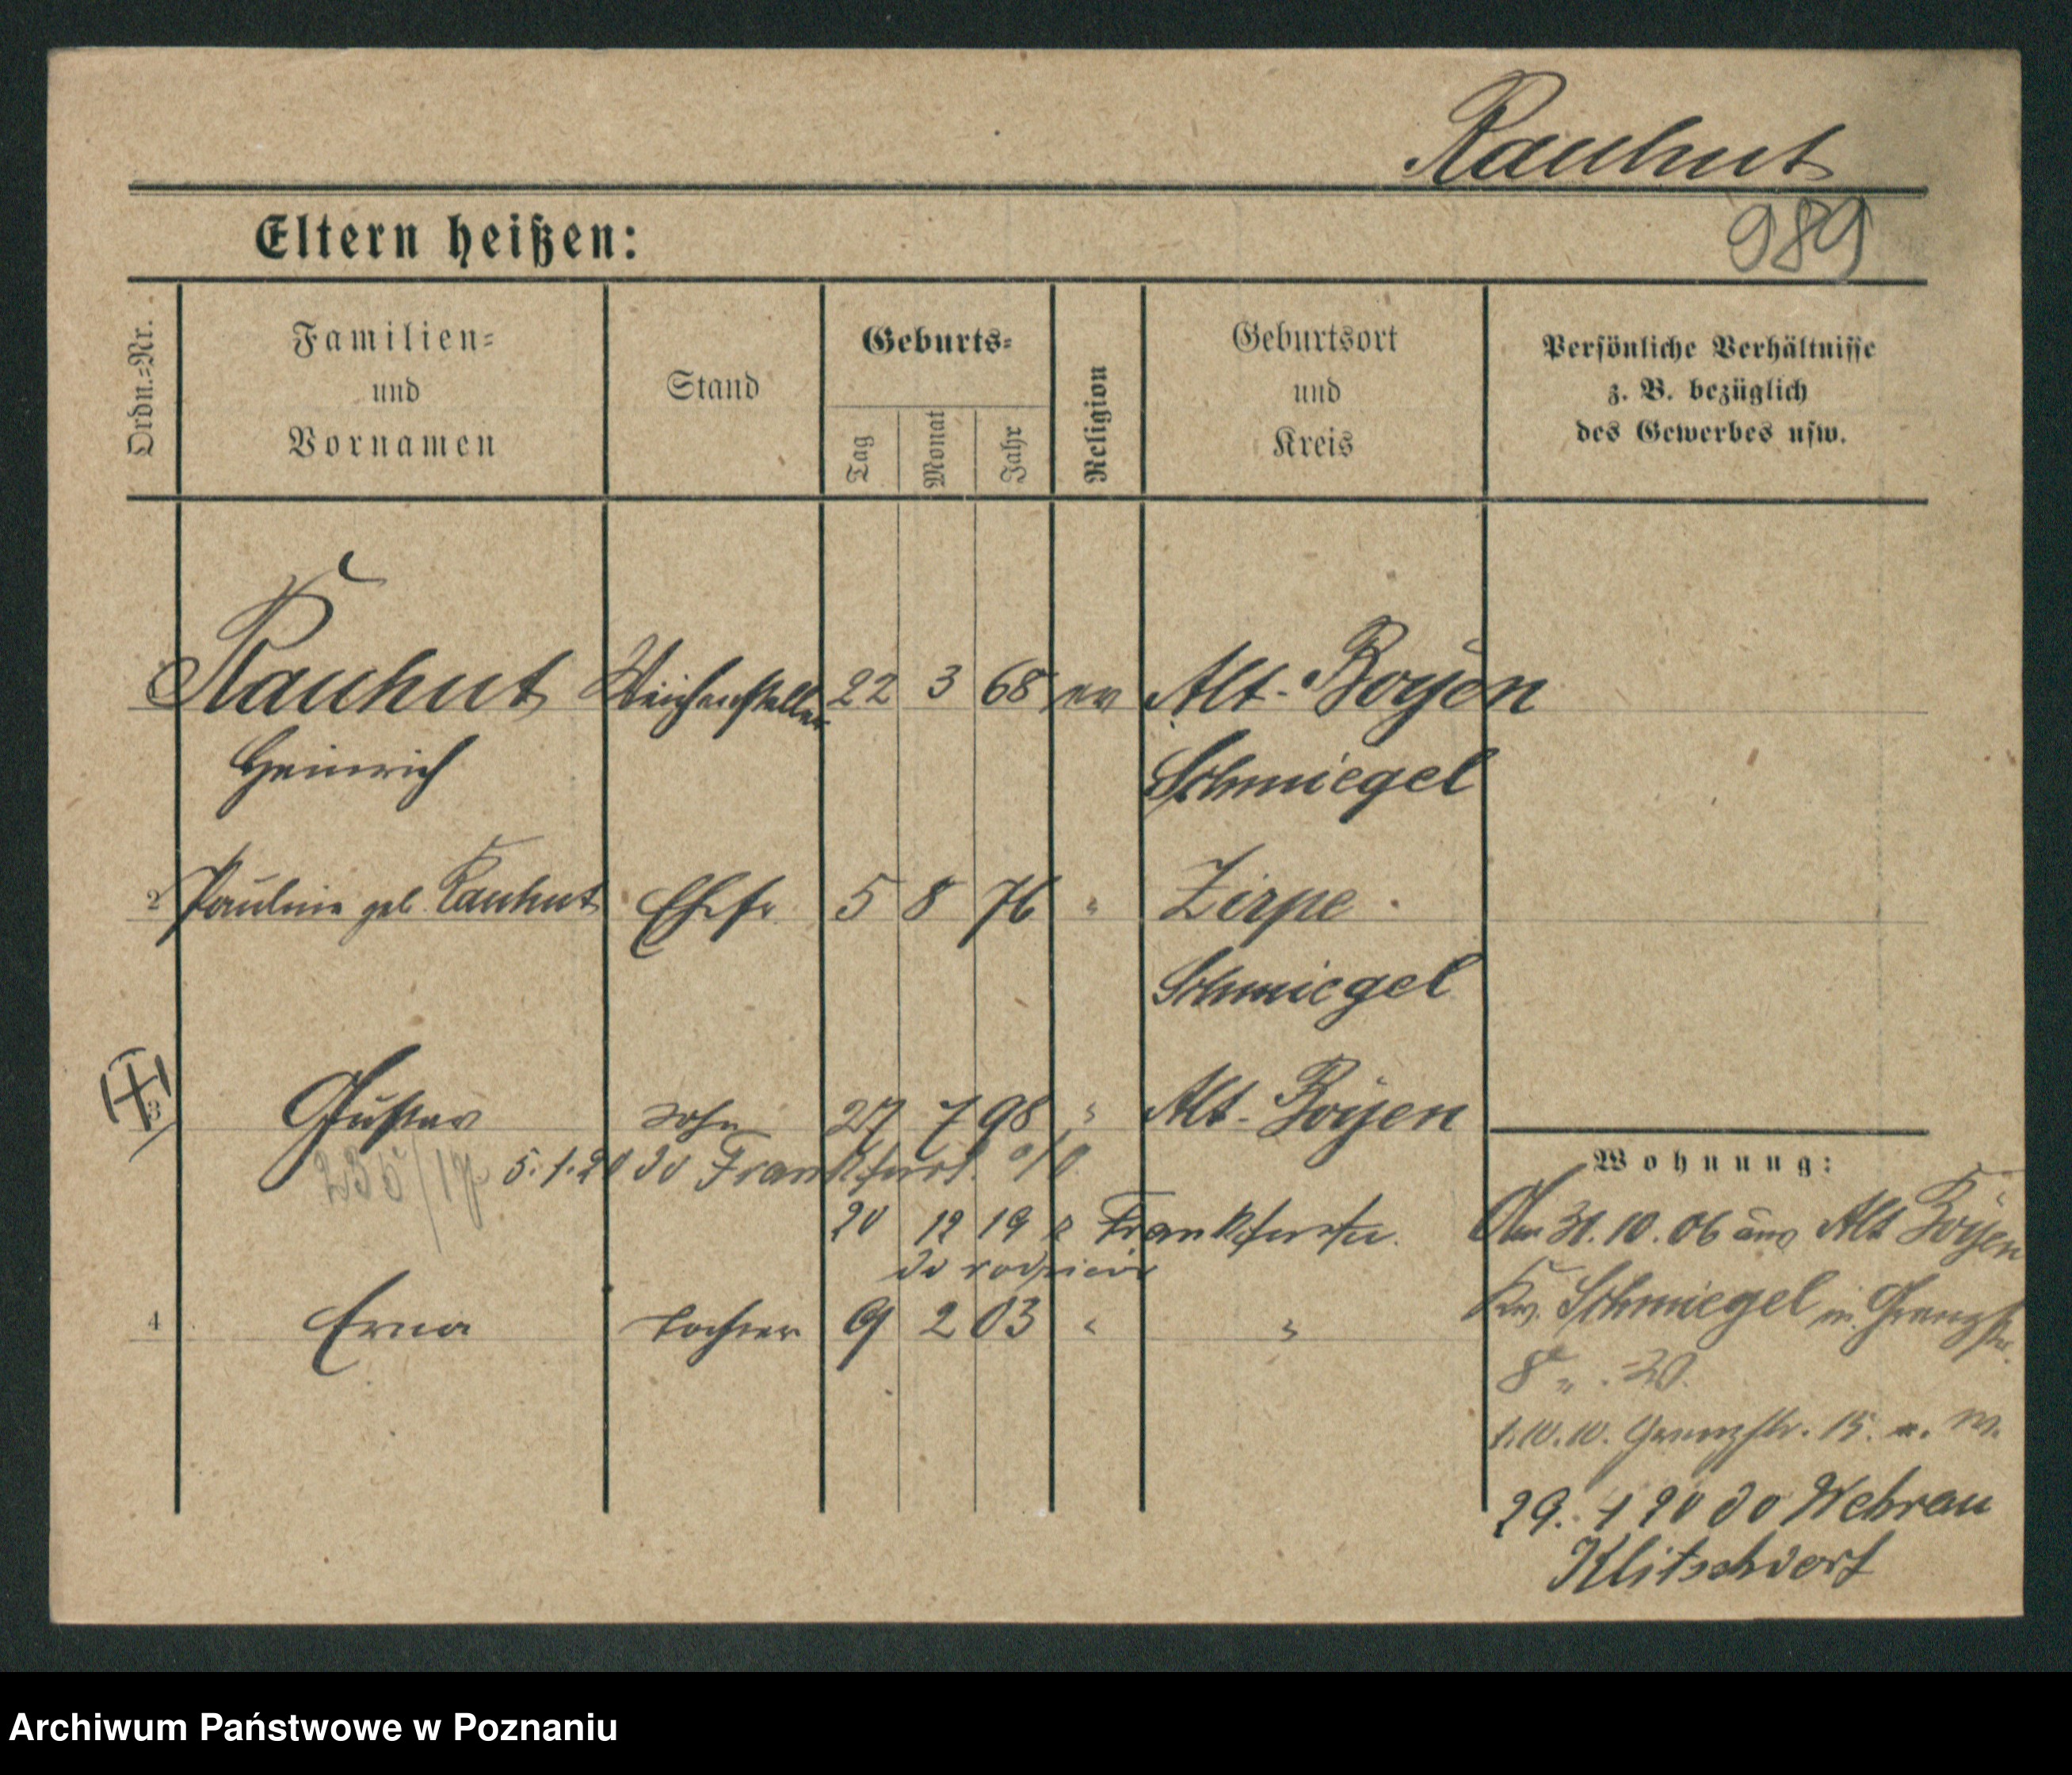 Rauhut
989
Eltern heißen:
Ordn.=Nr.
Familien=
und
Vornamen
Stand
Geburts=
Tag
Monat
Jahr
Religion
Geburtsort
und
Kreis
Persönliche Verhältnisse
z. B. bezüglich
des Gewerbes usw.
Rauhut Weichensteller 22 3 68 ev Alt-Boyen
Heinrich Schmiegel
2 Pauline geb. Rauhut Ehefr 5 8 76 " Zirpe
Schmiegel
3 Gustav Sohn 27 7 98 " Alt-Boyen
5.1.20 do Frankfurt o/O
20 12 19 z Frankfurtu.
do rodziców
4 Erna Tochter 9 2 03 " "
Wohnung:
Am 31.10.06 aus Alt Boyen
Kr. Schmiegel in Grenzstr.
8 " . 20.
1.10.10. Grenzstr. 15. n. W.
29. 1 20 do Wehrau
Klitschdorf
Archiwum Państwowe w Poznaniu